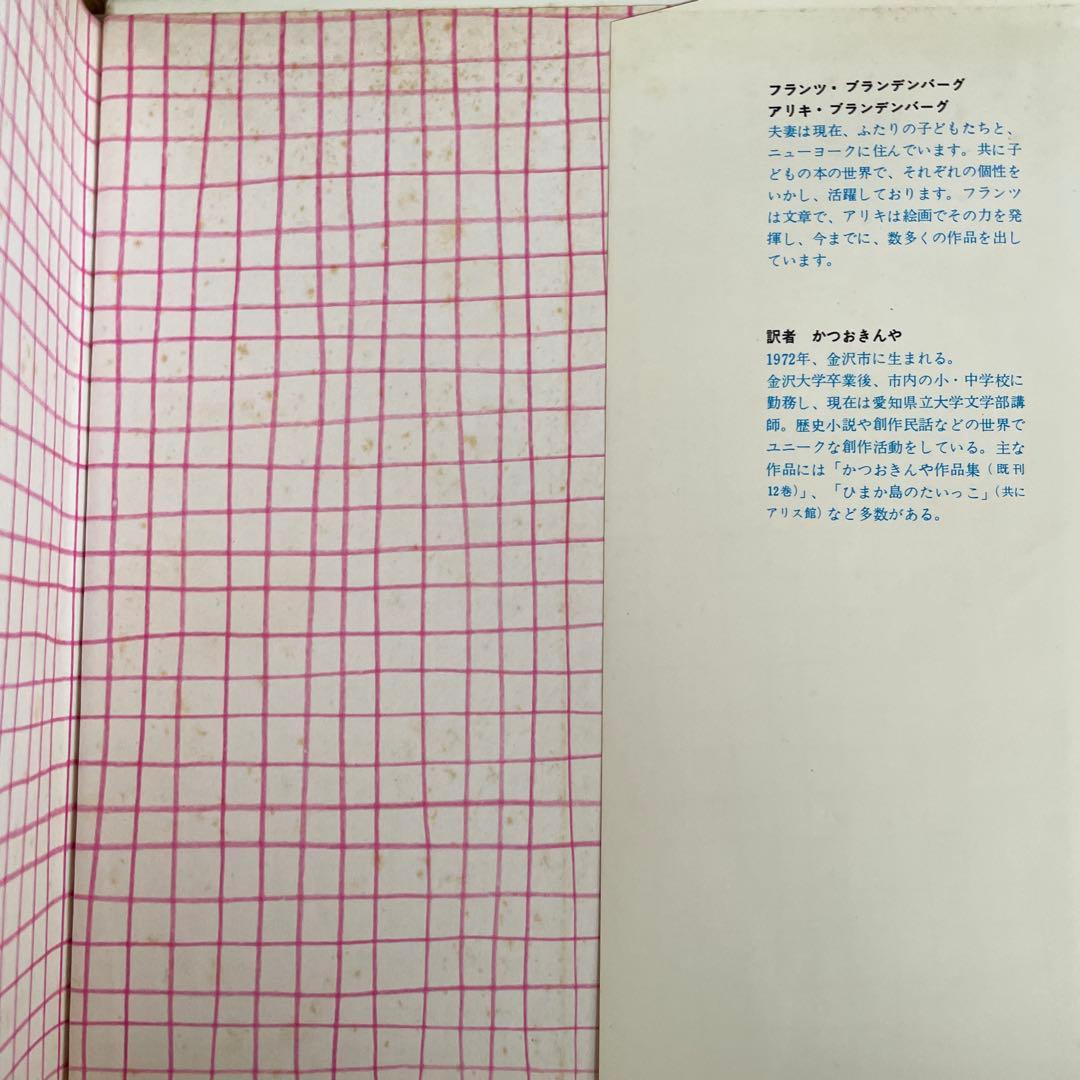 フランツ・ブランデンバーグ
アリキ・ブランデンバーグ
夫妻は現在、ふたりの子どもたちと、
ニューヨークに住んでいます。共に子
どもの本の世界で、それぞれの個性を
いかし、活躍しております。フランツ
は文章で、アリキは絵画でその力を発
揮し、今までに、数多くの作品を出し
ています。
訳者 かつおきんや
1972年、金沢市に生まれる。
金沢大学卒業後、市内の小・中学校に
勤務し、現在は愛知県立大学文学部講
師。歴史小説や創作民話などの世界で
ユニークな創作活動をしている。主な
作品には「かつおきんや作品集(既刊
12巻)」、「ひまか島のたいっこ」(共に
アリス館)など多数がある。